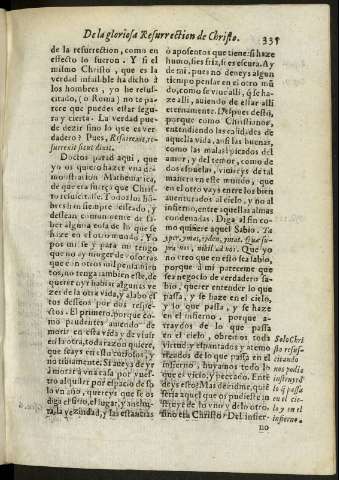 De la gloriosa Resurrection de Christo. 335
de la resurrection, como en
efecto lo fueron. Y si el
mismo Christo, que es la
verdad infalible ha dicho à
los hombres, yo he resus-
citado, (ò Roma) no te pa-
rece que puedes estar segu-
ra y cierta. La verdad pue-
de dezir sino lo que es ver-
dadero? Pues, Resurrexit, re-
surrexit sicut dixit.
Doctos parad aqui, que
yo os quiero hazer vna de-
mostracion Mathematica,
de que era fuerça que Chris-
to resucitasse. Todos los hõ-
bres hã siempre desseado, y
dessean comunmente de sa-
ber alguna cosa de lo que se
haze en el otro mundo. Yo
por mi se y para mi tengo
que no ay muger de vosotras
que con otros mil pensamien
tos, no tenga tambien este, de
querer oyr hablar algunas ve-
zes de la otra vida, y alabo es-
tos desseos por dos respec-
tos. El primero, porque co-
mo prudentes auiendo de
morir en esta vida y de viuir
en la otra, toda razon quiere,
que seays en esta curiosos, y
no tibiamente. Si a te ya de ye
à morir à vna casa por vues-
tro alquiler por espacio de so
lo vn año, quereys que se os
diga el sitio, el lugar, y anchu-
ra, la vezindad, y las estancias
ò aposentos que tiene: si haze
humo, si es fria, si es escura. A y
de mi, pues no deueys algun
tiempo pensar en el otro mũ
do, como se viue alli, q̃ se ha-
ze alli, auiendo de estar alli
eternamente. Despues desto,
porque como Christianos,
entendiendo las calidades de
aquella vida, assi las buenas,
como las malas picados del
amor, y del temor, como de
dos espuelas, viuireys de tal
manera en este mundo, que
en el otro vays entre los bien
auenturados al cielo, y no al
infierno, entre aquellas almas
condenadas. Diga al fin co-
mo quisiere aquel Sabio.
nos, nihil ad nos. Que yo
no creo que en esto sea sabio,
porque à mi pareceme que
sea negocio de verdadero sa-
bio, querer entender lo que
passa, y se haze en el cielo,
y lo que passa, y se haze
en el infierno, porque a-
traydos de lo que passa
en el cielo, obremos toda
virtud; y espantados y atemo
rizados de lo que passa en el
infierno, huyamos todo lo
que es vicio, y peccado. Enté
deys esto? Mas dezidme, quiẽ
seria aquel que os pudiesse in
struyr de lo vno y de lo otro,
sino era Christo? Del infier-
no
Solo Chri
sto resus-
citando
nos podia
instruyr ẽ
lo q̃ passa
en el cie-
lo y en el
infierno.